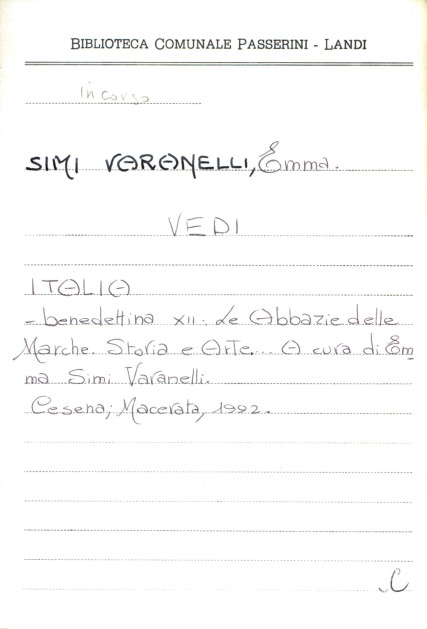 BIBLIOTECA COMUNALE PASSERINI - LANDI
in corso
SIMI VARANELLI, Emma.
VEDI
ITALIA
- benedettina XII. Le Abbazie delle
Marche. Storia e Arte... A cura di Em
ma Simi Varanelli.
Cesena; Macerata, 1992.
C